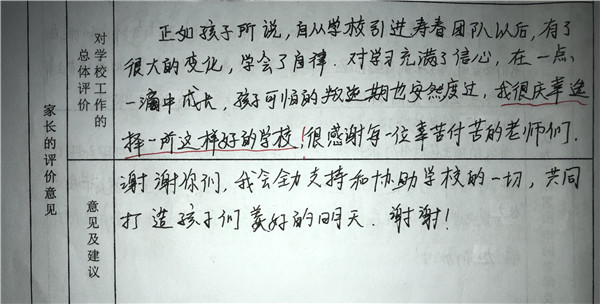 家长的评价意见
对学校工作的
总体评价
正如孩子所说，自从学校引进寿春团队以后，有了
很大的变化，学会了自律．对学习充满了信心，在一点、
一滴中成长，孩子可怕的叛逆期也安然度过，我很庆幸选
择一所这样好的学校！很感谢每一位辛苦付苦的老师们．
意见及建议
谢谢你们，我会全力支持和协助学校的一切，共同
打造孩子们美好的明天．谢谢！